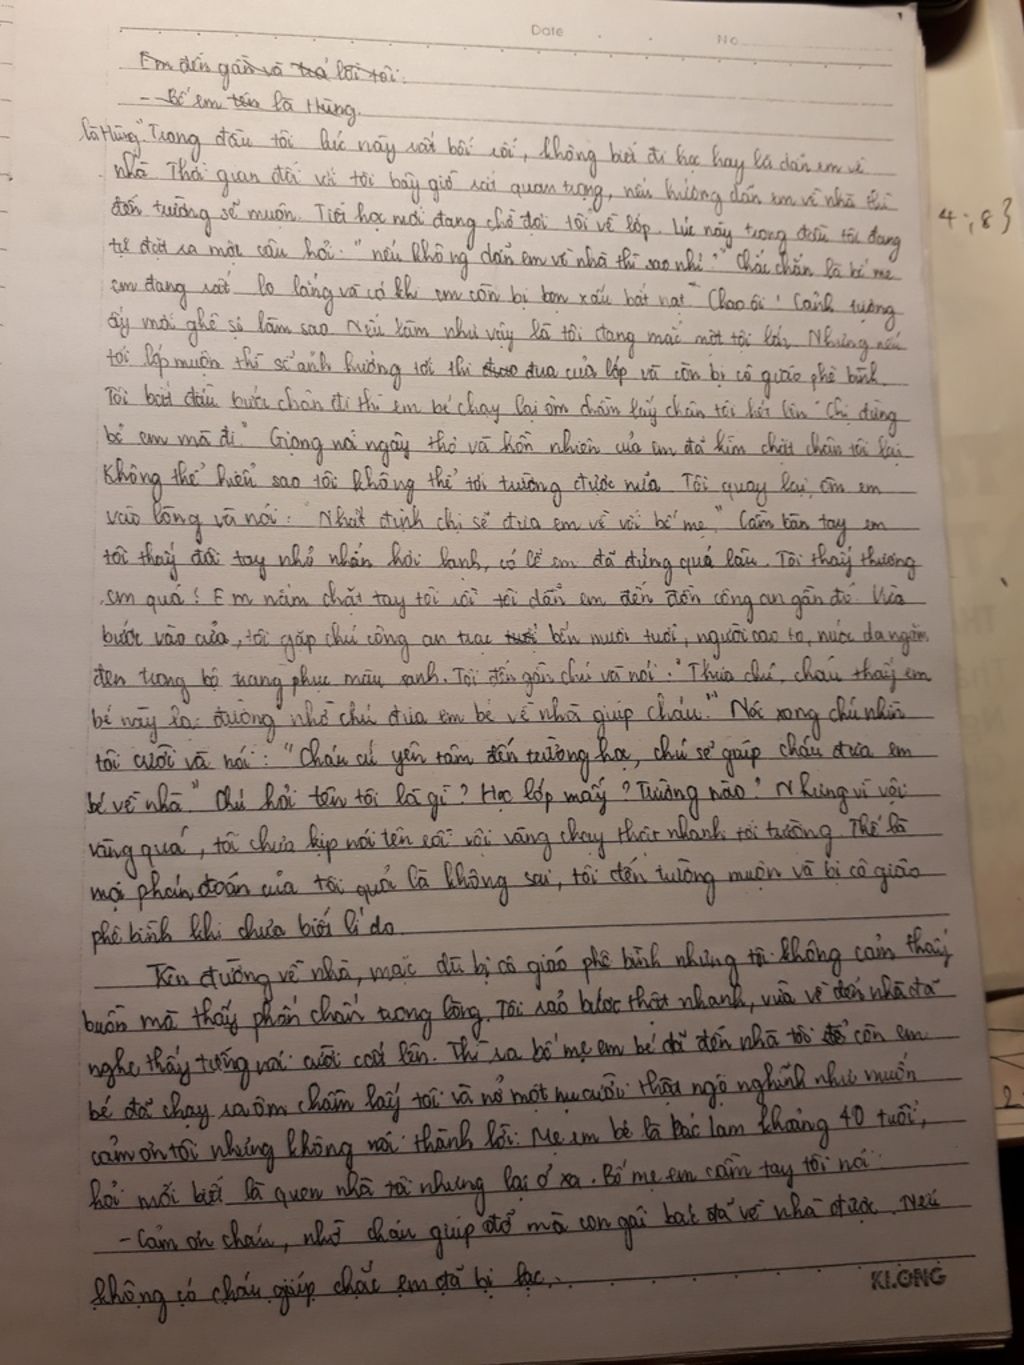 Date No
Em đến gần và trả lời tôi:
- Bố em tên là Hùng.
là Hùng". Trong đầu tôi lúc này rất bối rối, không biết đi học hay là dẫn em về
nhà. Thời gian đối với tôi bây giờ rất quan trọng, nếu hướng dẫn em về nhà thì
đến trường sẽ muộn. Tiết học mới đang chờ đợi tôi về lớp. Lúc này trong đầu tôi đang
tự đặt ra một câu hỏi: "nếu không dẫn em về nhà thì sao nhỉ?" Chắc chắn là bố mẹ
em đang rất lo lắng và có khi em còn bị bọn xấu bắt nạt" Chao ôi! Cảnh tượng
ấy mới ghê sợ làm sao. Nếu làm như vậy là tôi đang mắc một tội lớn. Nhưng nếu
tới lớp muộn thì sẽ ảnh hưởng tới thi đua của lớp và còn bị cô giáo phê bình.
Tôi bắt đầu bước chân đi thì em bé chạy lại ôm chầm lấy chân tôi hét lên "Chị đừng
bỏ em mà đi." Giọng nói ngây thơ và hồn nhiên của em đã kìm chặt chân tôi lại
Không thể hiểu sao tôi không thể tới trường được nữa. Tôi quay lại, ôm em
vào lòng và nói: "Nhất định chị sẽ đưa em về với bố mẹ." Cầm bàn tay em
tôi thấy đôi tay nhỏ nhắn hơi lạnh, có lẽ em đã đứng quá lâu. Tôi thấy thương
em quá! Em nắm chặt tay tôi rồi tôi dẫn em đến đồn công an gần đó. Vừa
bước vào cửa, tôi gặp chú công an trạc bốn mươi tuổi, người cao to, nước da ngăm
đen trong bộ trang phục màu xanh. Tôi đến gần chú và nói: "Thưa chú, cháu thấy em
bé này lạc đường nhờ chú đưa em bé về nhà giúp cháu." Nói xong chú nhìn
tôi cười và nói: "Cháu cứ yên tâm đến trường học, chú sẽ giúp cháu đưa em
bé về nhà." Chú hỏi tên tôi là gì? Học lớp mấy? Trường nào? Nhưng vì vội
vàng quá, tôi chưa kịp nói tên rồi vội vàng chạy thật nhanh tới trường. Thế là
mọi phán đoán của tôi quả là không sai, tôi đến trường muộn và bị cô giáo
phê bình khi chưa biết lí do.
Trên đường về nhà, mặc dù bị cô giáo phê bình nhưng tôi không cảm thấy
buồn mà thấy phấn chấn trong lòng. Tôi rảo bước thật nhanh, vừa về đến nhà đã
nghe thấy tiếng nói cười cất lên. Thì ra bố mẹ em bé đã đến nhà tôi còn em
bé đã chạy ra ôm chầm lấy tôi và nở một nụ cười thật ngộ nghĩnh như muốn
cảm ơn tôi nhưng không nói thành lời. Mẹ em bé là bác Lam khoảng 40 tuổi,
hỏi mới biết là quen nhà tôi nhưng lại ở xa. Bố mẹ em cầm tay tôi nói:
- Cảm ơn cháu, nhờ cháu giúp đỡ mà con gái bác đã về nhà được. Nếu
không có cháu giúp chắc em đã bị lạc.
KLONG
4;8}
2